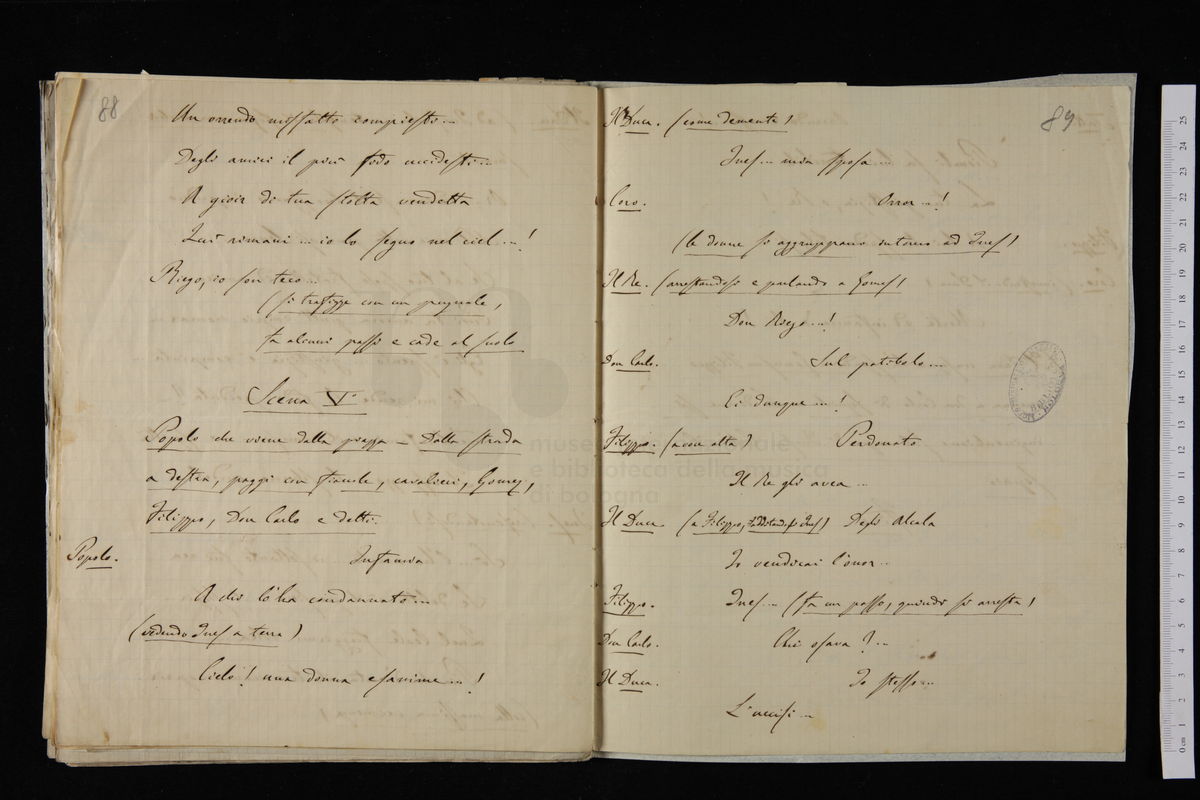 88
Un orrendo misfatto compiesti...
Degli amici il più fido uccidesti...
A gioir di tua stolta vendetta
Qui rimani... io lo seguo nel ciel...!
Riego, io son teco...
(si trafigge con un pugnale,
fa alcuni passi e cade al suolo
Scena Vª
Popolo che viene dalla piazza - Dalla strada
a destra, paggi con fiaccole, cavalieri, Gomez,
Filippo, Don Carlo e detti.
Popolo. Infamia
A chi l'ha condannato...
(vedendo Ines a terra)
Cielo! una donna esanime...!
89
Il Duca. (come demente)
Ines... mia sposa...
Coro. Orror...!
(le donne si aggruppano intorno ad Ines)
Il Re. (arrestandosi e parlando a Gomez)
Don Riego...!
Don Carlo. Sul patibolo...
Ei dunque...!
Filippo. (a voce alta) Perdonato
Il Re gli avea...
Il Duca (a Filippo, additandogli Ines) Degli Alcala
Io vendicai l'onor...
Filippo. Ines... (fa un passo, quindi si arresta)
Don Carlo. Chi osava?...
Il Duca. Io stesso...
L'uccisi...
museo internazionale
e biblioteca della musica
di bologna